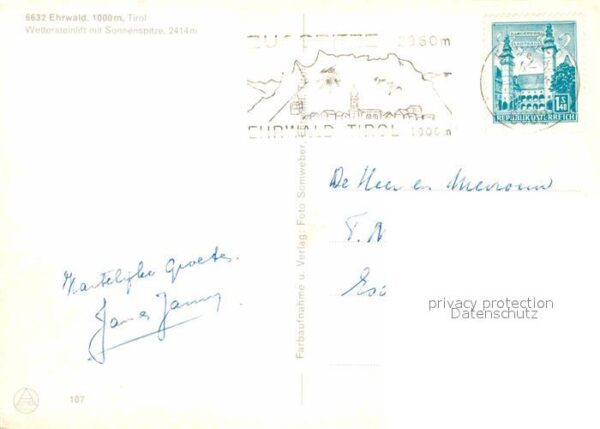 6632 Ehrwald, 1000m, Tirol
Wettersteinlift mit Sonnenspitze, 2414m
ZUGSPITZE 2960m
EHRWALD TIROL 1000m
1S40
REPUBLIK ÖSTERREICH
Farbaufnahme u. Verlag: Foto Somweber,
De Heer en Mevrouw
T.
Hartelijke Groeten.
privacy protection
Datenschutz
107